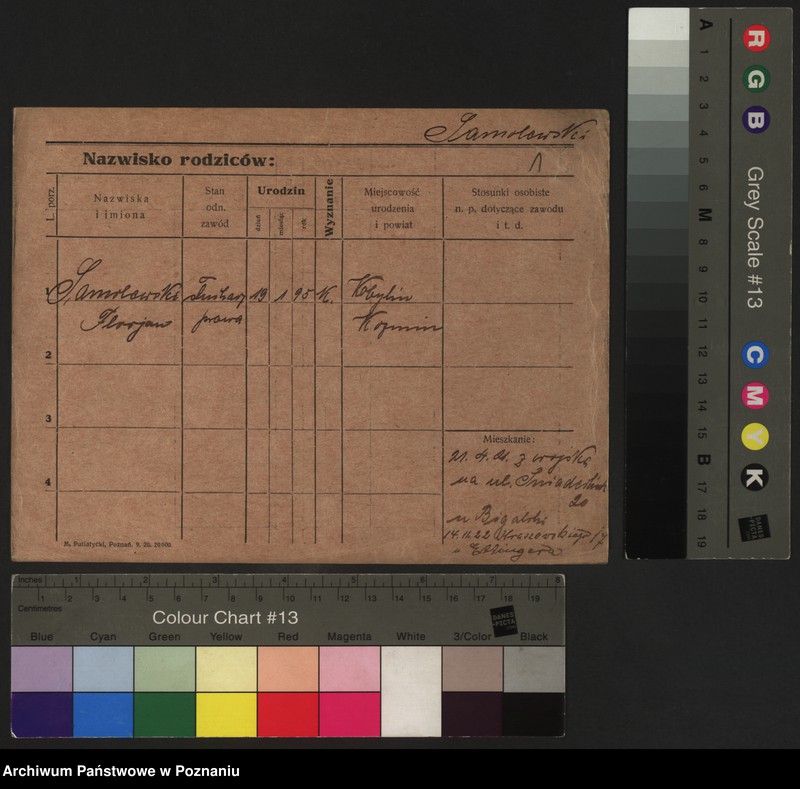 Samolewski
1
Nazwisko rodziców:
L. porz.
Nazwiska
i imiona
Stan
odn.
zawód
Urodzin
dzień
miesiąc
rok
Wyznanie
Miejscowość
urodzenia
i powiat
Stosunki osobiste
n. p. dotyczące zawodu
i t. d.
1 Samolewski Słuchacz 19 1 95 K. Kobylin
Florjan prawa Kozmin
2
3
4
Mieszkanie:
21. 4. 21. z wojska
na ul.
20
u Bigalski
14.11.22 Kraszewskiego 17
u Ettingera
M. Putiatycki, Poznań.
Inches 1 2 3 4 5 6 7 8
Centimetres 1 2 3 4 5 6 7 8 9 10 11 12 13 14 15 16 17 18 19
Colour Chart #13
DANES
PICTA
Blue Cyan Green Yellow Red Magenta White 3/Color Black
A 1 2 3 4 5 6 M 8 9 10 11 12 13 14 15 B 17 18 19
R G B
Grey Scale #13
C M Y K
DANES
PICTA
Archiwum Państwowe w Poznaniu